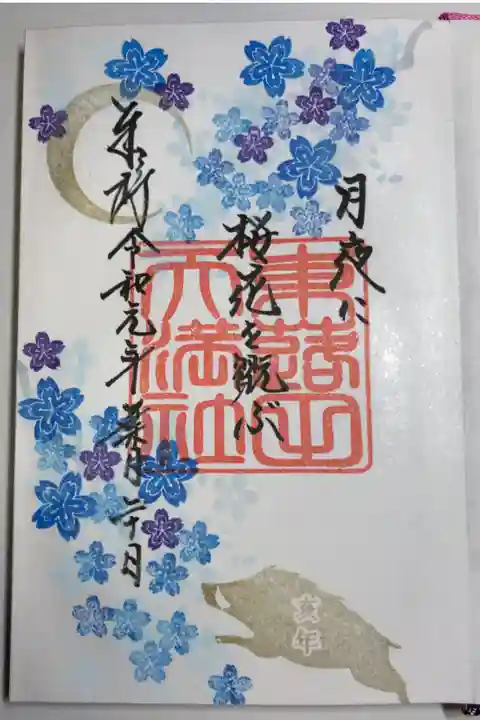 月夜に
桜花を翫ぶ
令和元年 葉月二十日
東蕗田
天満社
亥年